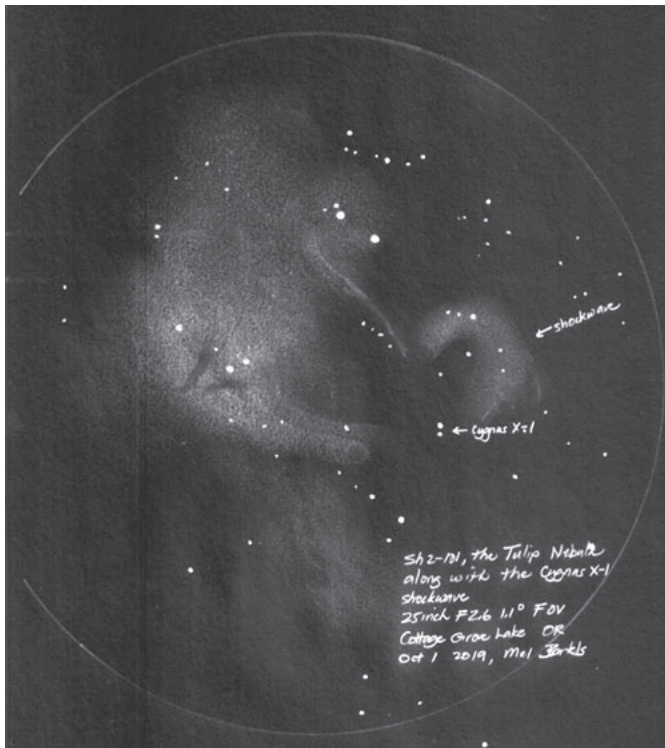 ← shockwave
← Cygnus X-1
Sh2-101, the Tulip Nebula
along with the Cygnus X-1
shockwave
25inch F2.6 1.1° FOV
Cottage Grove Lake OR
Oct 1 2019, Mel Bartels